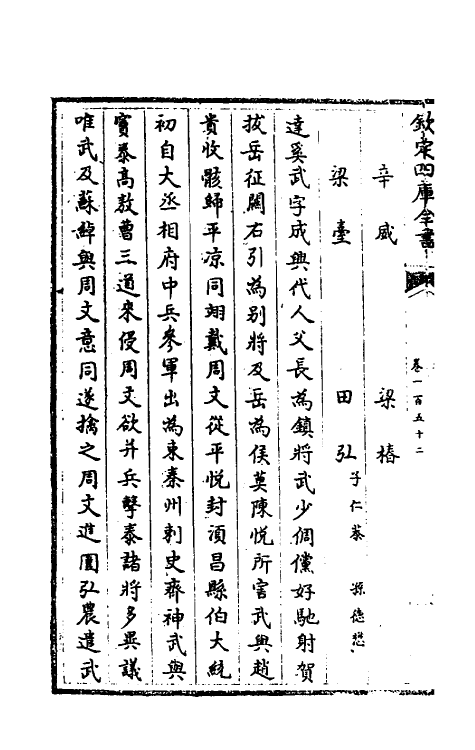 欽定四庫全書
卷一百五十二
辛威　梁椿
梁臺　田弘子仁恭　孫德懋
達奚武字成興代人父長為鎮將武少倜儻好馳射賀
拔岳征關右引為别將及岳為侯莫陳悦所害武與趙
貴收骸歸平凉同翊戴周文從平悦封須昌縣伯大統
初自大丞相府中兵參軍出為東秦州刺史齊神武與
竇泰高敖曹三道來侵周文欲并兵擊泰諸將多異議
唯武及蘇綽與周文意同遂擒之周文進圍弘農遣武